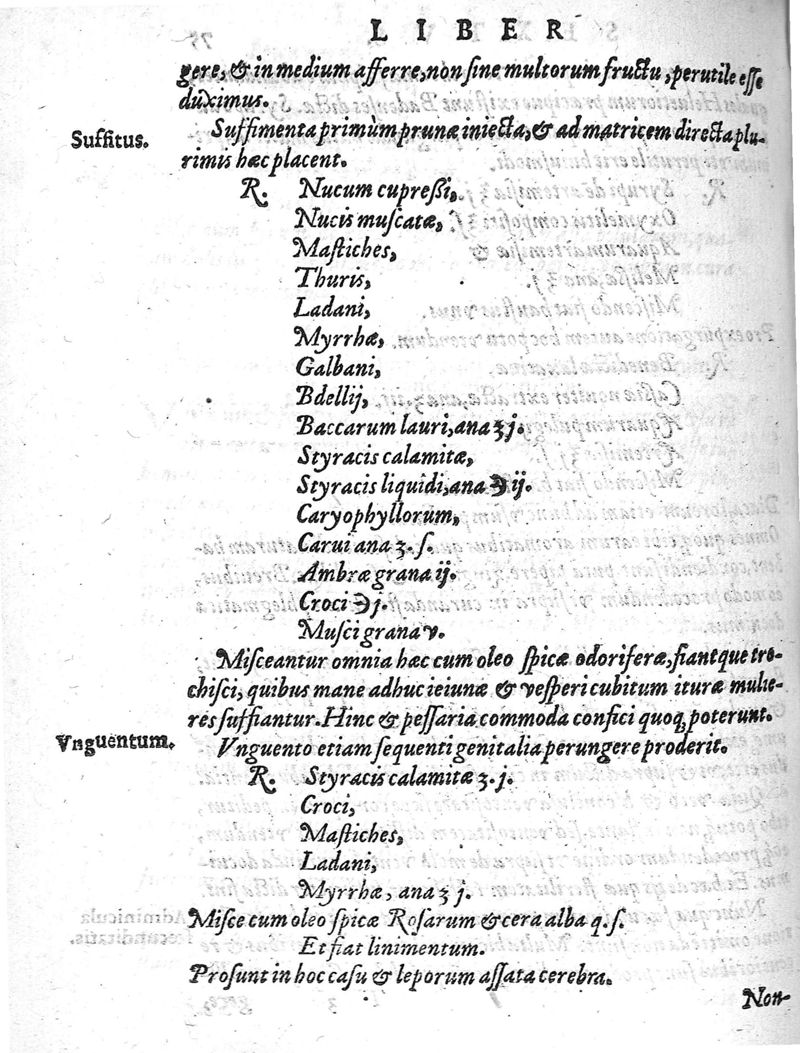 LIBER
gere, & in medium afferre, non ſine multorum fructu, perutile eſſe
duximus.
Suffitus.
Suffimenta primùm prunæ iniecta, & ad matricem directa plu-
rimis hæc placent.
R. Nucum cupreßi,
Nucis muſcatæ,
Maſtiches,
Thuris,
Ladani,
Myrrhæ,
Galbani,
Bdellij,
Baccarum lauri, ana ʒ j.
Styracis calamitæ,
Styracis liquidi, ana ℈ ij.
Caryophyllorum,
Carui ana ʒ. ſ.
Ambræ grana ij.
Croci ℈ j.
Muſci grana v.
Miſceantur omnia hæc cum oleo ſpicæ odoriferæ, fiantque tro-
chiſci, quibus mane adhuc ieiunæ & veſperi cubitum ituræ mulie-
res ſuffiantur. Hinc & peſſaria commoda confici quoq; poterunt.
Vnguentum.
Vnguento etiam ſequenti genitalia perungere proderit.
R. Styracis calamitæ ʒ. j.
Croci,
Maſtiches,
Ladani,
Myrrhæ, ana ʒ j.
Miſce cum oleo ſpicæ Roſarum & cera alba q. ſ.
Et fiat linimentum.
Proſunt in hoc caſu & leporum aſſata cerebra.
Non-